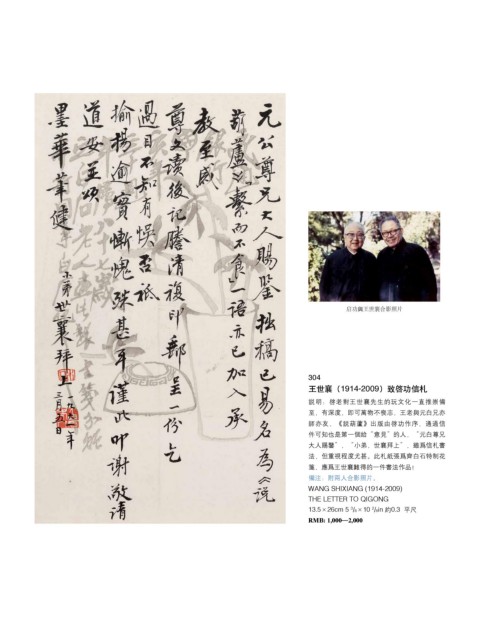 元公尊兄大人賜鑒拙稿已易名為《説
葫蘆》《繫而不食》一語亦已加入承
教至感
尊文讀後記謄清複印郵呈一份乞
過目不知有悞否祗
揄揚逾實慚愧殊甚耳謹此叩謝敬請
道安並頌
墨華筆健
小弟世襄拜上一九九一年
三月廿五日
启功與王世襄合影照片
304
王世襄（1914-2009）致啓功信札
說明：啓老對王世襄先生的玩文化一直推崇備
至，有深度，即可萬物不喪志，王老與元白兄亦
師亦友，《說葫蘆》出版由啓功作序，通過信
件可知也是第一個給“意見”的人，“元白尊兄
大人賜鑒”，“小弟，世襄拜上”，雖爲信札書
法，但重視程度尤甚，此札紙張爲齊白石特制花
箋，應爲王世襄難得的一件書法作品！
備注：附兩人合影照片。
WANG SHIXIANG (1914-2009)
THE LETTER TO QIGONG
13.5×26cm 5 ³/₈×10 ²/₈in 約0.3 平尺
RMB: 1,000—2,000